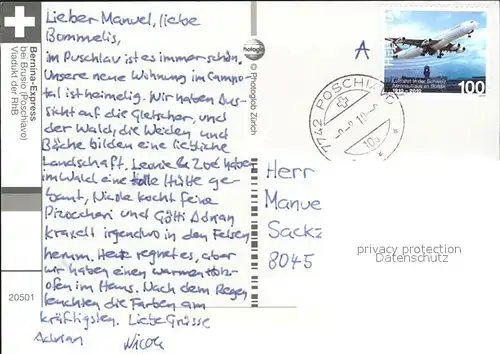 Lieber Manuel, liebe
Bommelis,
im Puschlav ist es immer schön.
Unsere neue Wohnung im Campo-
tal ist heimelig. Wir haben Aus-
sicht auf die Gletscher, und
der Wald, die Weiden und
Bäche bilden eine liebliche
Landschaft. Leonie & Zoé haben
im Wald eine tolle Hütte ge-
baut, Nicole kocht feine
Pizoccheri und Götti Adrian
kraxelt irgendwo in den Felsen
herum. Heute regnet es, aber
wir haben einen warmen Holz-
ofen im Haus. Nach dem Regen
leuchten die Farben am
kräftigsten. Liebe Grüsse
Adrian Nicole
Bernina-Express
bei Brusio (Poschiavo)
Viadukt der RhB
20501
photoglob
© Photoglob Zürich
A
Luftfahrt in der Schweiz
Aéronautique en Suisse
1910–2010
100
HELVETIA
7742 POSCHIAVO
10
Herr
Manue
Sackz
8045
privacy protection
Datenschutz